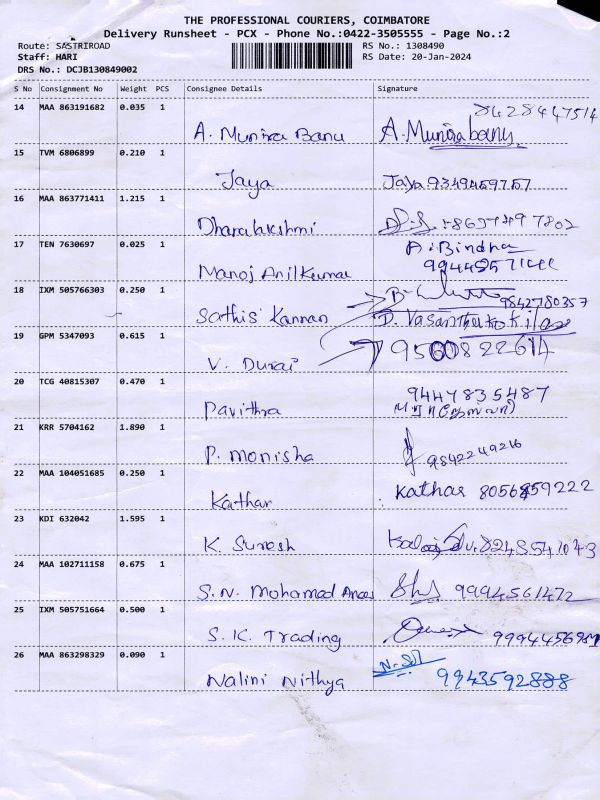 THE PROFESSIONAL COURIERS, COIMBATORE
Delivery Runsheet - PCX - Phone No.:0422-3505555 - Page No.:2
Route: SASTRIROAD RS No.: 1308490
Staff: HARI RS Date: 20-Jan-2024
DRS No.: DCJB130849002
S No Consignment No Weight PCS Consignee Details Signature
14 MAA 863191682 0.035 1 8428447514
A. Munira Banu A. Munira banu
15 TVM 6806899 0.210 1
Jaya Jaya 9349459757
16 MAA 863771411 1.215 1
Dharalakshmi
17 TEN 7630697 0.025 1 A. Bindha
Manoj Anil Kumar
18 IXM 505766303 0.250 1 9842780357
Sathis Kannan D. Vasantha kokila
19 GPM 5347093 0.615 1
V. Durai 9560822614
20 TCG 40815307 0.470 1 9447835487
Pavithra
21 KRR 5704162 1.890 1
P. monisha 9842249216
22 MAA 104051685 0.250 1
Kathar Kathar 8056859222
23 KDI 632042 1.595 1
K. Suresh
24 MAA 102711158 0.675 1
S.N. Mohamad Anas 9994561472
25 IXM 505751664 0.500 1
S.K. Trading
26 MAA 863298329 0.090 1
Nalini Nithya 9943592888